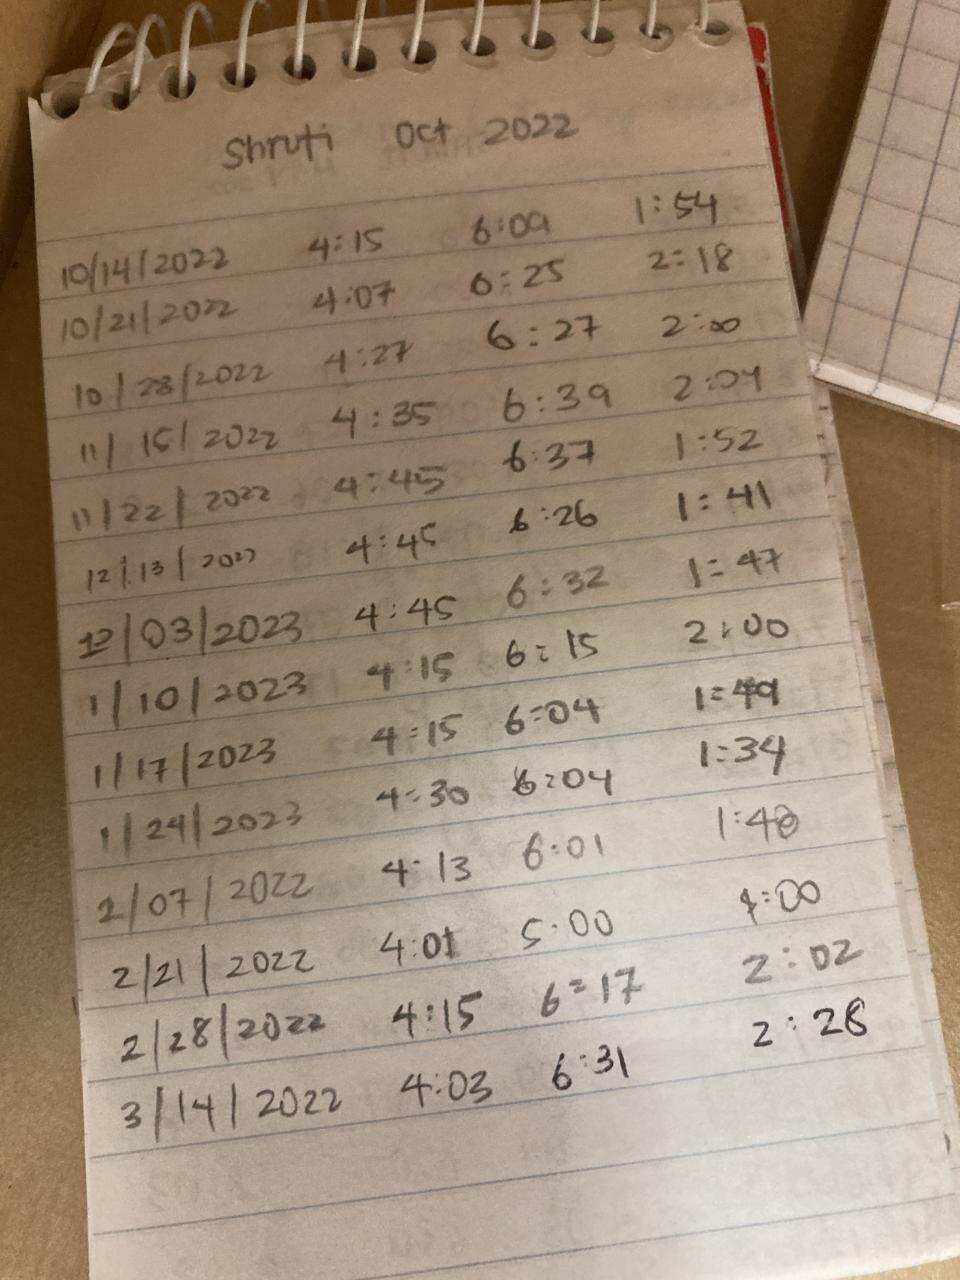 Shruti Oct 2022
10/14/2022 4:15 6:09 1:54
10/21/2022 4:07 6:25 2:18
10/28/2022 4:27 6:27 2:00
11/15/2022 4:35 6:39 2:04
11/22/2022 4:45 6:37 1:52
12/13/2022 4:45 6:26 1:41
12/03/2023 4:45 6:32 1:47
1/10/2023 4:15 6:15 2:00
1/17/2023 4:15 6:04 1:49
1/24/2023 4:30 6:04 1:34
2/07/2022 4:13 6:01 1:48
2/21/2022 4:01 5:00 1:00
2/28/2022 4:15 6:17 2:02
3/14/2022 4:03 6:31 2:28